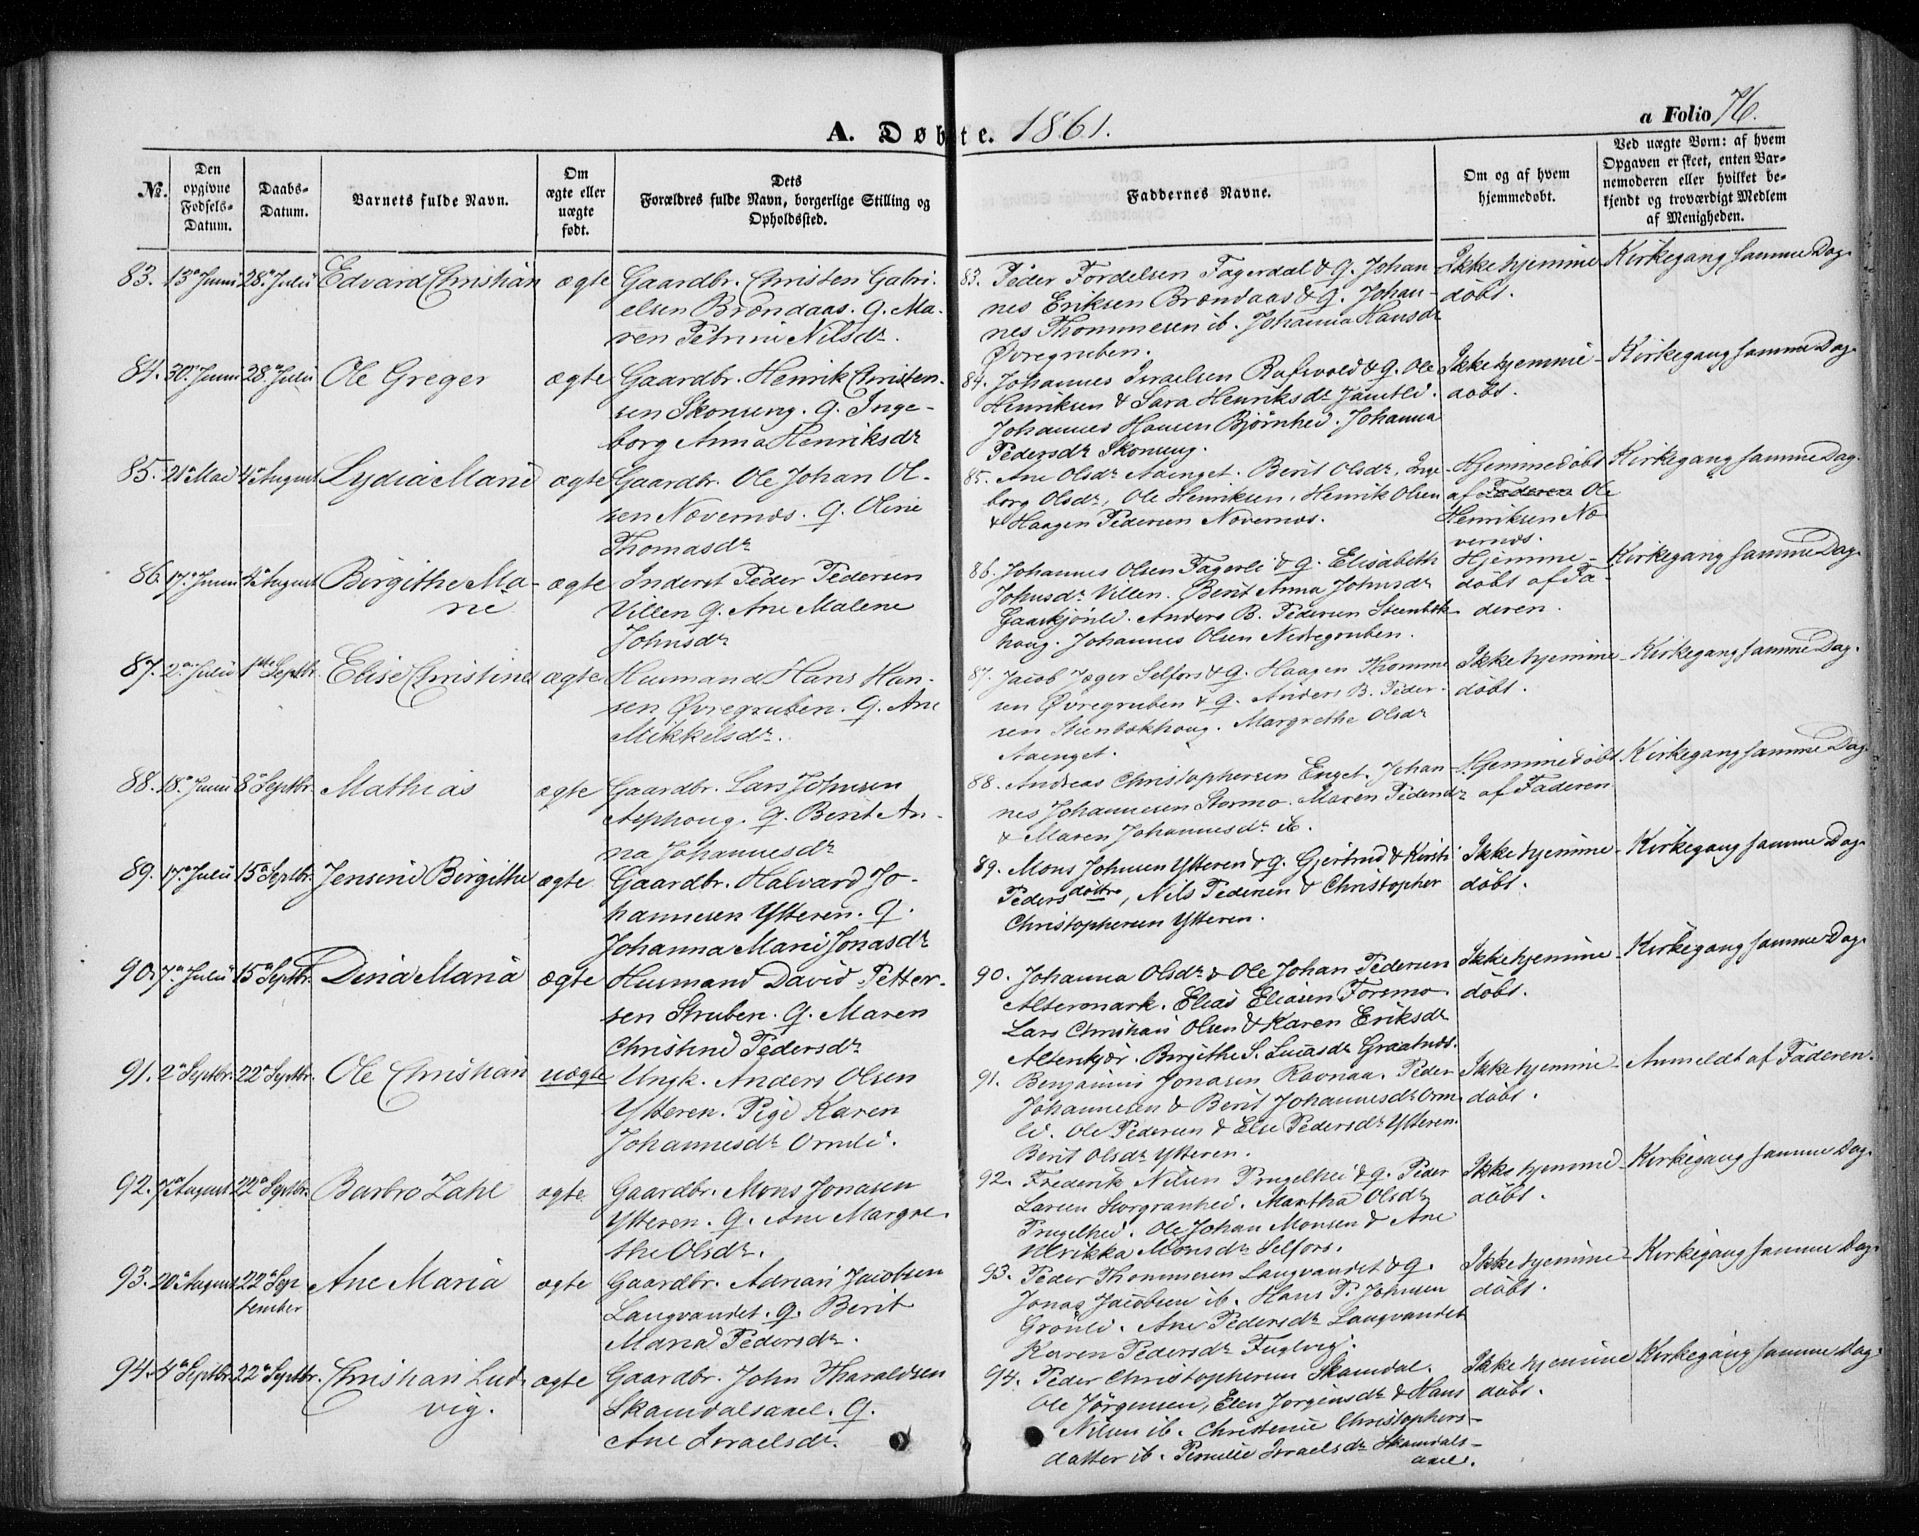 A. Døbte. 1861.
a Folio 76.
№.
Den opgivne Fødsels-Datum.
Daabs-Datum.
Barnets fulde Navn.
Om ægte eller uægte født.
Dets Forældres fulde Navn, borgerlige Stilling og Opholdssted.
Faddernes Navne.
Om og af hvem hjemmedøbt.
Ved uægte Børn: af hvem Opgaven er skeet, enten Barnemoderen eller hvilket bekjendt og troværdigt Medlem af Menigheden.
83. 13de Junii 28de Julii Edvard Christian ægte Gaardbr. Christen Gabri-
elsen Brændaas. Q. Ma-
ren Petrine Nilsdr.
83. Peder Fordelsen Fagerdal & Q. Johan-
nes Eriksen Brændaas & Q. Johan-
nes Thommesen ib. Johanna Hansdr
Øvregruben.
Ikke hjemme-
døbt.
Kirkegang samme Dag.
84. 30. Junii 28. Julii Ole Greger ægte Gaardbr. Henrik Christen-
sen Skonseng. Q. Inge-
borg Anna Henriksdr
84. Johannes Israelsen Rafvold & Q. Ole
Henriksen & Sara Henriksdr Jamtli.
Johannes Hansen Bjørnhei. Johanna
Pedersdr Skonseng.
Ikke hjemme-
døbt.
Kirkegang samme Dag.
85. 21. Mai 4. August Lydia Marie ægte Gaardbr. Ole Johan Ol-
sen Nævernæs. Q. Oline
Thomasdr
85. Ane Olsdr Aaenget. Berit Olsdr, Inge-
borg Olsdr, Ole Henriksen, Henrik Olsen
& Haagen Pedersen Nævernæs.
Hjemmedøbt
af Faderen Ole
Henriksen Næ-
vernæs.
Kirkegang samme Dag.
86. 17. Junii 4. August Birgithe Ma-
rie ægte Inderst Peder Pedersen
Villen Q. Ane Malene
Johnsdr
86. Johannes Olsen Fagerli & Q. Elisabeth
Johnsdr Villen. Berit Anna Johnsdr
Gaaskjønli. Anders B. Pedersen Steenbæk-
houg. Johannes Olsen Nedregruben.
Hjemme-
døbt af Fa-
deren.
Kirkegang samme Dag.
87. 2. Julii 1ste Septbr. Elise Christine ægte Husmand Hans Han-
sen Øvregruben. Q. Ane
Mikkelsdr.
87. Jacob Jæger Selfors & Q. Haagen Thomme-
sen Øvregruben & Q. Anders B. Peder-
sen Steenbækhoug. Margrethe Olsdr
Aaenget.
Ikke hjemme-
døbt.
Kirkegang samme Dag.
88. 18. Junii 8. Septbr. Mathias ægte Gaardbr. Lars Johnsen
Asphoug. Q. Berit An-
na Johannesdr
88. Andreas Christophersen Enget. Johan-
nes Johannesen Stormo. Maren Pedersdr
& Maren Johannesdr ib.
Hjemmedøbt
af Faderen
Kirkegang samme Dag.
89. 17. Julii 15. Septbr. Jensine Birgithe ægte Gaardbr. Halvard Jo-
hannesen Ytteren. Q.
Johanna Marie Jonasdr
89. Mons Johnsen Ytteren & Q. Gjertrud & Kirsti
Pedersdøttre, Nils Pedersen & Christopher
Christophersen Ytteren.
Ikke hjemme-
døbt.
Kirkegang samme Dag.
90. 7. Julii 15. Septbr. Dina Maria ægte Husmand David Petter-
sen Struben. Q. Maren
Christine Pedersdr
90. Johanna Olsdr & Ole Johan Pedersen
Altermark. Elias Eliasen Forsmo.
Lars Christian Olsen & Karen Eriksdr
Altenkjær. Birgithe S. Lucasdr Graatnæs.
Ikke hjemme-
døbt.
Kirkegang samme Dag.
91. 2. Septbr. 22. Septbr. Ole Christian uægte Ungk. Anders Olsen
Ytteren. Pige Karen
Johannesdr Ormli.
91. Benjamin Jonasen Ravnaa. Peder
Johannesen & Berit Johannesdr Orm-
li. Ole Pedersen & Else Pedersdr Ytteren.
Berit Olsdr Ytteren.
Ikke hjemme-
døbt.
Anmeldt af Faderen.
92. 7. August 22. Septbr. Barbro Zahl ægte Gaardbr. Mons Jonasen
Ytteren. Q. Ane Margre-
the Olsdr.
92. Frederik Nilsen Prugelhei & Q. Peder
Larsen Storgranhei. Martha Olsdr
Prugelhei. Ole Johan Monsen & Ane
Ulrikka Monsdr Selfors.
Ikke hjemme-
døbt.
Kirkegang samme Dag.
93. 20. August 22. Sep-
tember Ane Maria ægte Gaardbr. Adrian Jacobsen
Langvandet. Q. Berit
Maria Pedersdr.
93. Peder Thommesen Langvandet & Q.
Jonas Jacobsen ib. Hans P. Johnsen
Grønli. Ane Pedersdr Langvandet
Karen Pedersdr Fuglvig.
Ikke hjemme-
døbt.
Kirkegang samme Dag.
94. 4. Septbr. 22. Septbr. Christian Lud-
vig. ægte Gaardbr. John Tharaldsen
Skamdalsaxel. Q.
Ane Israelsdr.
94. Peder Christophersen Skamdal.
Ole Jørgensen, Elen Jørgensdr & Hans
Nilsen ib. Christence Christophers-
datter ib. Pernille Israelsdr Skamdals-
axel.
Ikke hjemme-
døbt.
Kirkegang samme Dag.